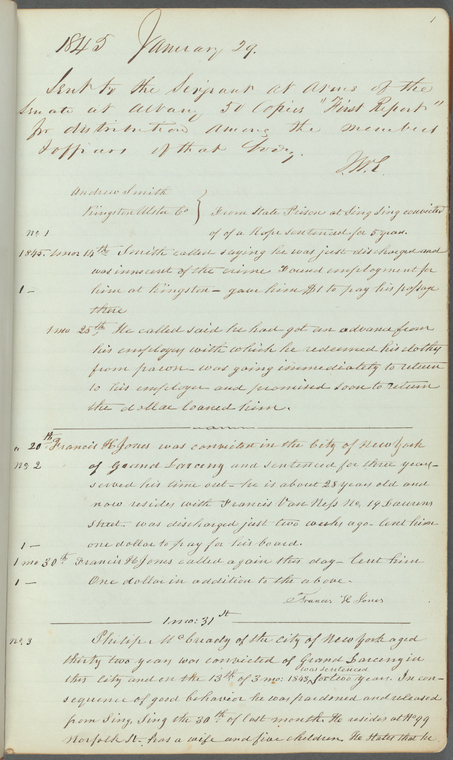 1
1845 January 29.
Sent to the Sergeant at Arms of the
Senate at Albany 50 Copies "First Report"
for distribution among the members
& officers of that body.
Andrew Smith
Kingston Ulster Co } From State Prison at Sing Sing convicted
No. 1 of a Rape sentenced for 5 years.
1845. 1 mo: 14th Smith called saying he was just discharged and
was innocent of the crime Found employment for
1 – him at Kingston – gave him $1 to pay his passage
there
1 mo 25th He called said he had got an advance from
his employer with which he redeemed his clothes
from pawn – was going immediately to return
to his employer and promised soon to return
the dollar loaned him.
" 20th Francis H. Jones was convicted in the City of New York
No. 2 of Grand Larceny and sentenced for three years –
served his time out – he is about 28 years old and
now resides with Francis Van Ness No. 19
Street – was discharged just two weeks ago – lent him
1 – one dollar to pay for his board.
1 mo 30th Francis H Jones called again this day – lent him
1 – One dollar in addition to the above.
Francis H Jones
1 mo: 31st
No. 3 Philip McCready of the city of New York aged
thirty two years was convicted of Grand Larceny in
this city and on the 13th of 3 mo: 1843, was sentenced for two years. In con-
sequence of good behavior he was pardoned and released
from Sing Sing the 30th of last month. He resides at No 99
Norfolk St – has a wife and five children. He states that he